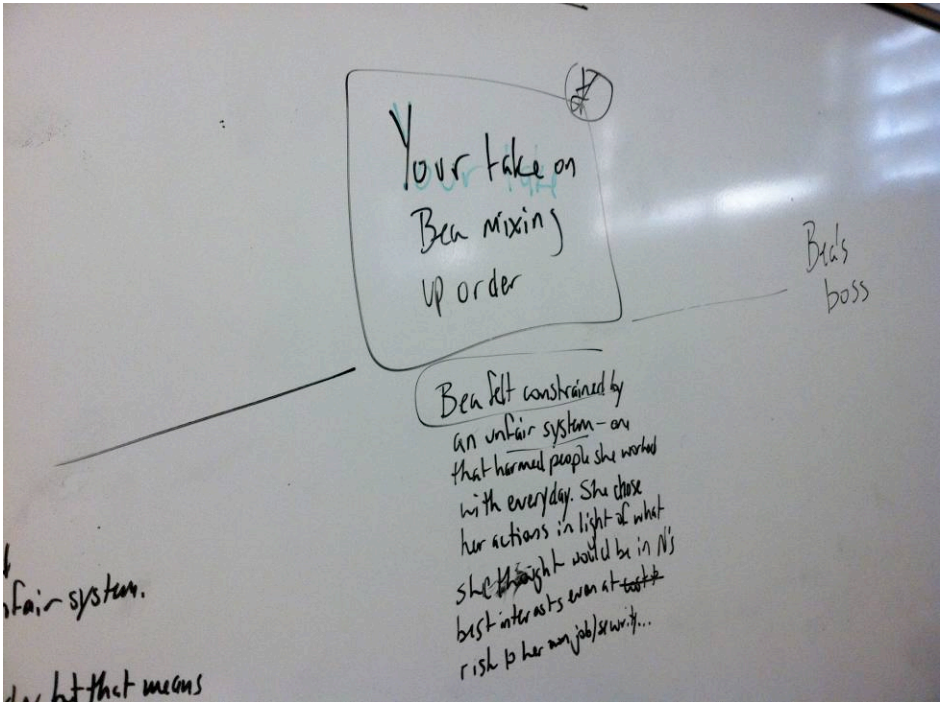 Your take on
Bea mixing
up order
Bea's
boss
Bea felt constrained by
an unfair system - one
that harmed people she worked
with everyday. She chose
her actions in light of what
she thought would be in N's
best interests even at
risk to her own job/security...
nfair system.
but that means